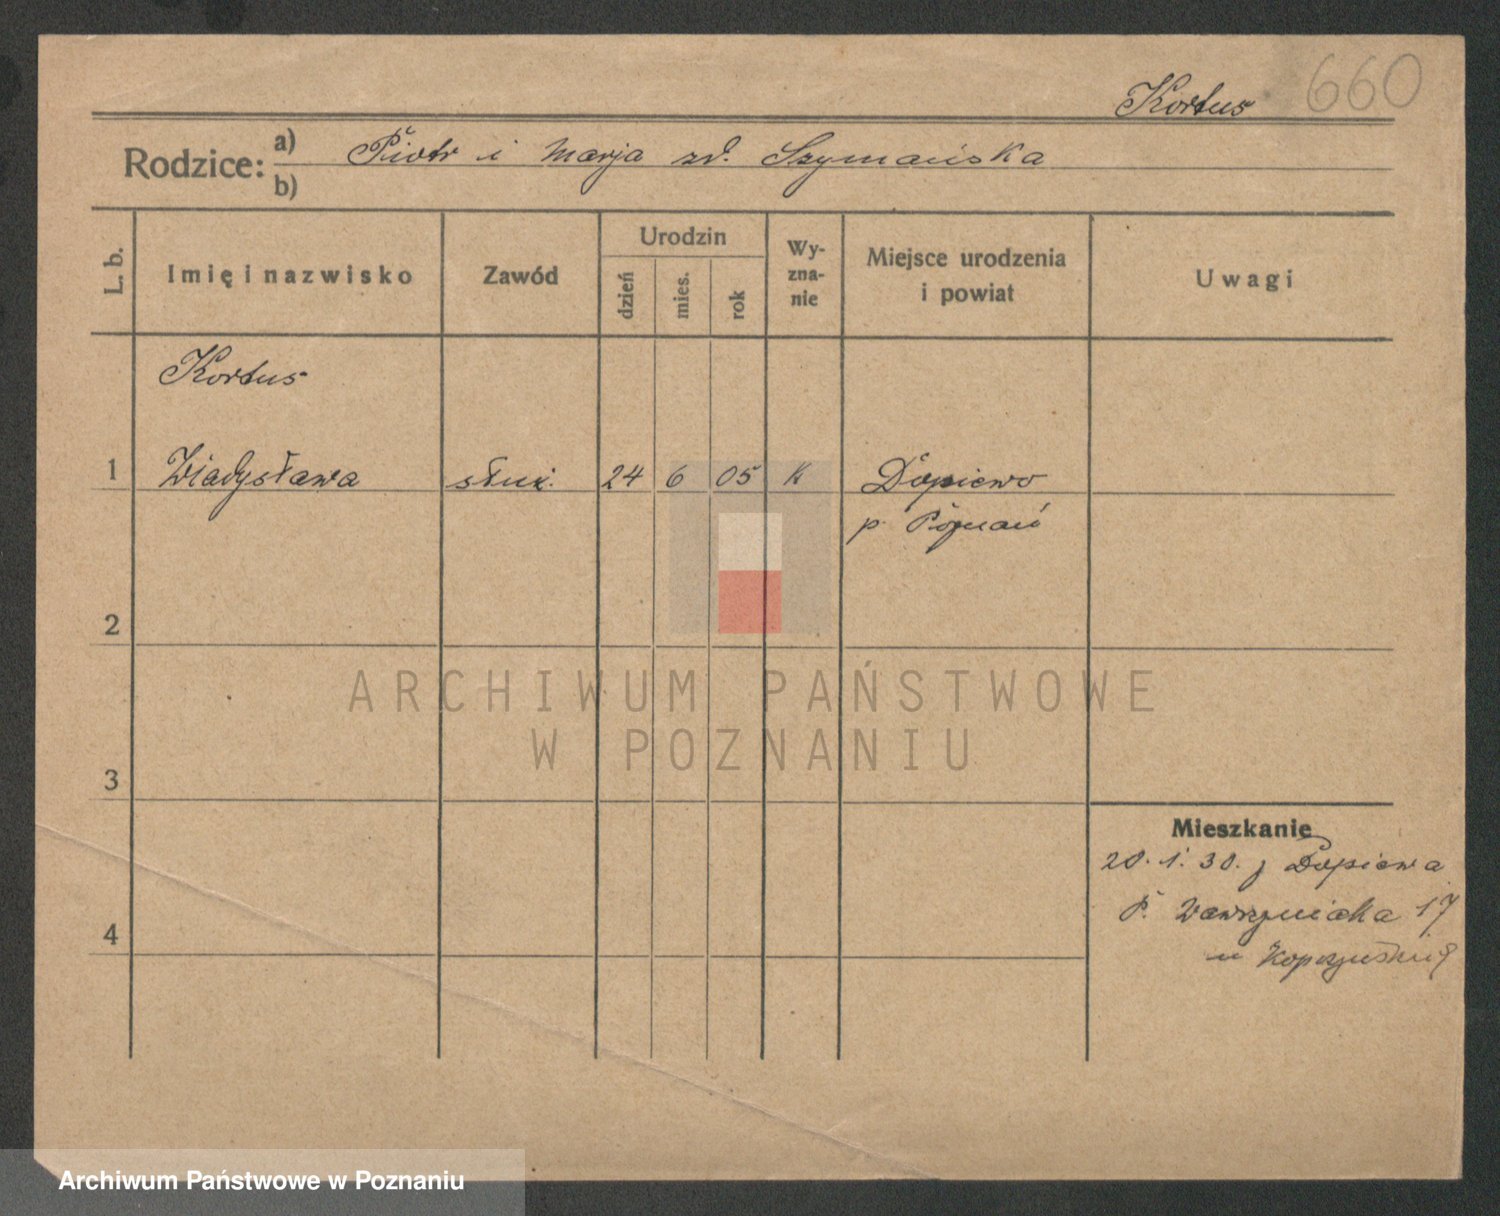 Kortus 660
Rodzice: a) Piotr i Marja zd. Szymańska
b)
L. b.
Imię i nazwisko
Zawód
Urodzin
dzień
mies.
rok
Wy-
zna-
nie
Miejsce urodzenia
i powiat
Uwagi
Kortus
1 Władysława służ. 24 6 05 K Dopiewo
p. Poznań
2
ARCHIWUM PAŃSTWOWE
W POZNANIU
3
Mieszkanie
20. 1. 30. z Dopiewa
P. Wawrzyniaka 17
4
u
Archiwum Państwowe w Poznaniu